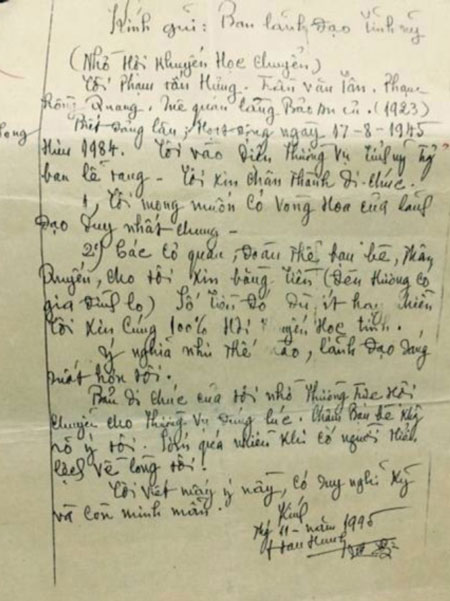 Kính gửi: Ban lãnh đạo tỉnh ủy
(Nhờ Hội Khuyến Học chuyển)
Tôi Phạm Tấn Hưng. Trần Văn Tân. Phạm
Hồng Quang. Quê quán làng Bảo An cũ. (1923)
Hoạt động ngày 17-8-1945
Hưu 1984. Tôi vào diện Thường Vụ tỉnh uỷ
ban lễ tang - Tôi xin chân thành di-chúc.
1, Tôi mong muốn có vòng hoa của lãnh
đạo duy nhất chung -
2º) Các cơ quan, đoàn thể bạn bè, thân
quyến, cho tôi xin bằng tiền (đèn hương có
gia đình lo) Số tiền đó dù ít hay nhiều
Tôi xin cúng 100% Hội Khuyến Học tỉnh.
Ý nghĩa như thế nào, lãnh đạo sáng
suốt hơn tôi.
Bản di chúc của tôi nhờ Thường Trực Hội
chuyển cho Thường Vụ đúng lúc.
rõ ý tôi. khi có người hiểu
lệch về lòng tôi.
Tôi viết mấy ý này, có suy nghĩ kỹ
và còn minh mẫn.
Kính
11 - năm 1995
Tan Hung